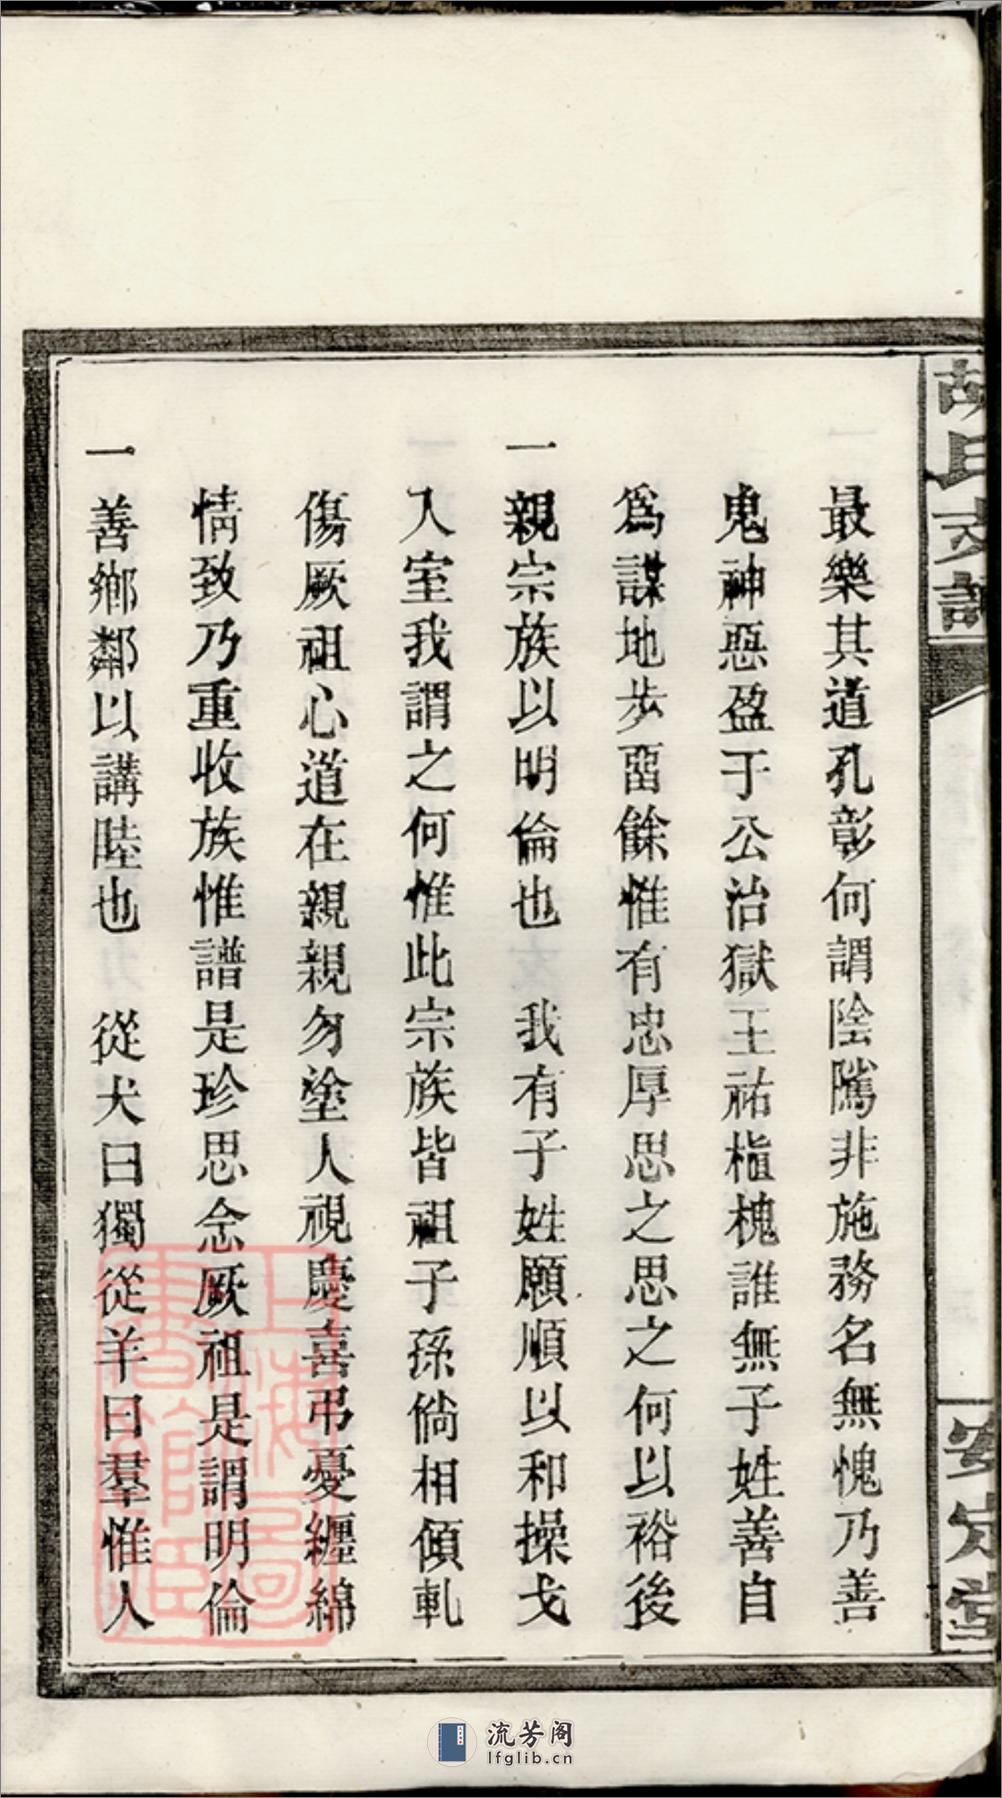 胡氏支譜
安定堂
最樂其道孔彰何謂陰隲非施務名無愧乃善
鬼神惡盈于公治獄王祐植槐誰無子姓善自
爲謀地步畱餘惟有忠厚思之思之何以裕後
一親宗族以明倫也　我有子姓願順以和操戈
入室我謂之何惟此宗族皆祖子孫倘相傾軋
傷厥祖心道在親親勿塗人視慶喜弔憂纏綿
情致乃重收族惟譜是珍思念厥祖是謂明倫
一善鄉鄰以講睦也　從犬曰獨從羊曰羣惟人
上海圖書館藏
流芳阁
lfglib.cn